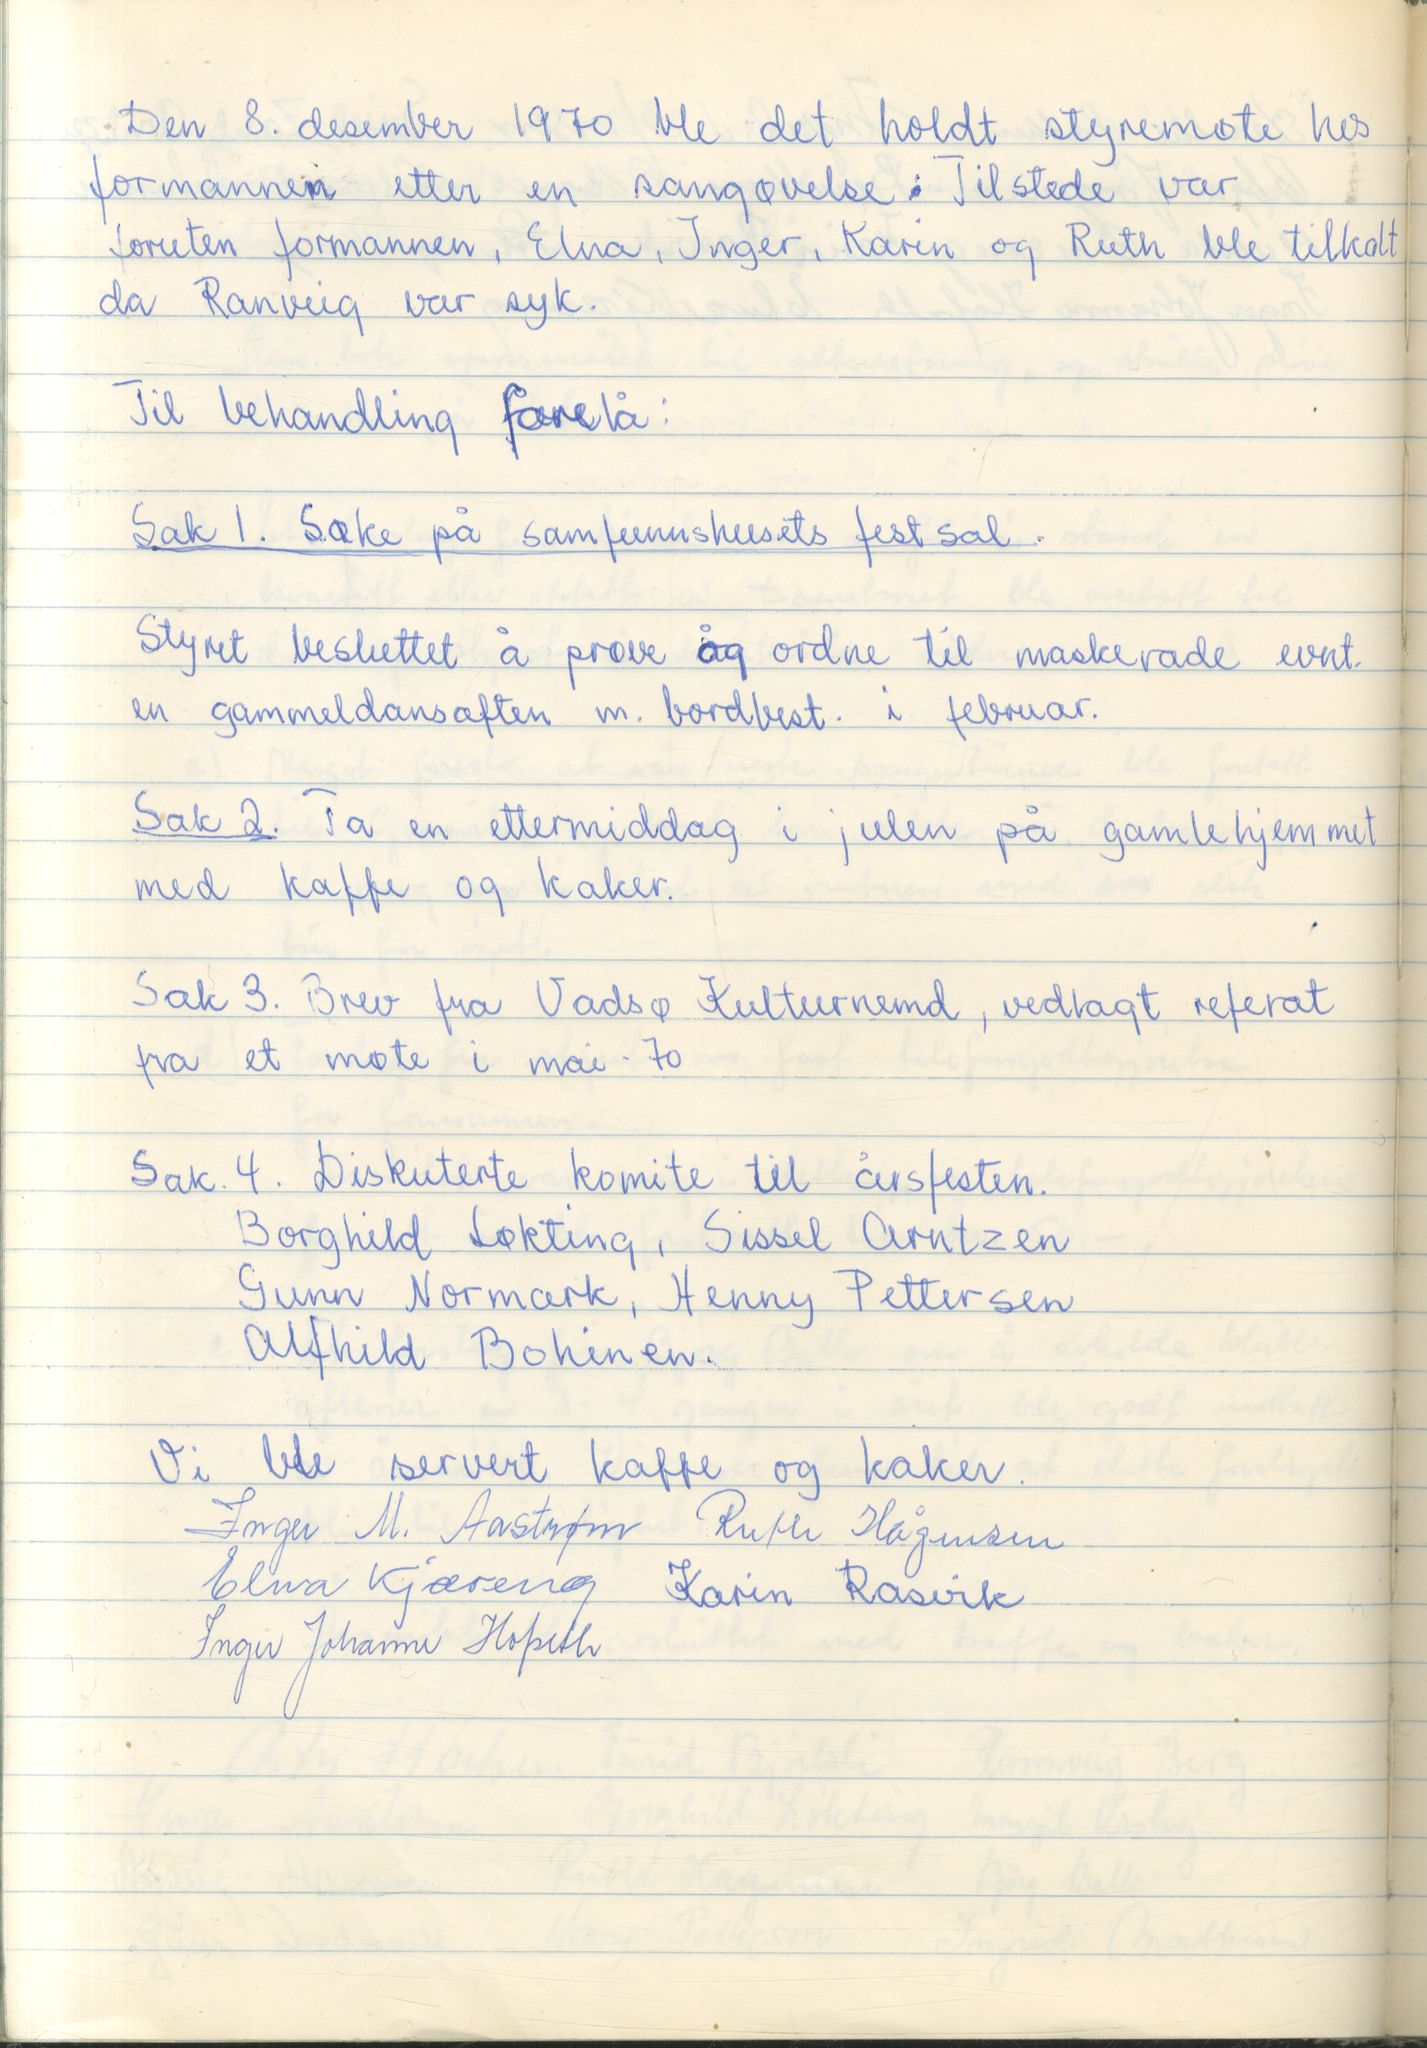 Den 8. desember 1970 ble det holdt styremøte hos
formannen etter en sangøvelse. Tilstede var
foruten formannen, Elna, Inger, Karin og Ruth ble tilkalt
da Ranveig var syk.
Til behandling forelå:
Sak 1. Søke på samfunnshusets festsal.
Styret besluttet å prøve åg ordne til maskerade evnt.
en gammeldansaften m. bordbest. i februar.
Sak 2. Ta en ettermiddag i julen på gamlehjemmet
med kaffe og kaker.
Sak 3. Brev fra Vadsø Kulturnemd, vedlagt referat
fra et møte i mai -70
Sak. 4. Diskuterte komite til årsfesten.
Borghild Løkting, Sissel Arntzen
Gunn Normark, Henny Pettersen
Alfhild Bohinen.
Vi ble servert kaffe og kaker.
Inger M. Aastrøm Ruth Hågensen
Elna Kjæreng Karin Rasvik
Inger Johanne Hopseth